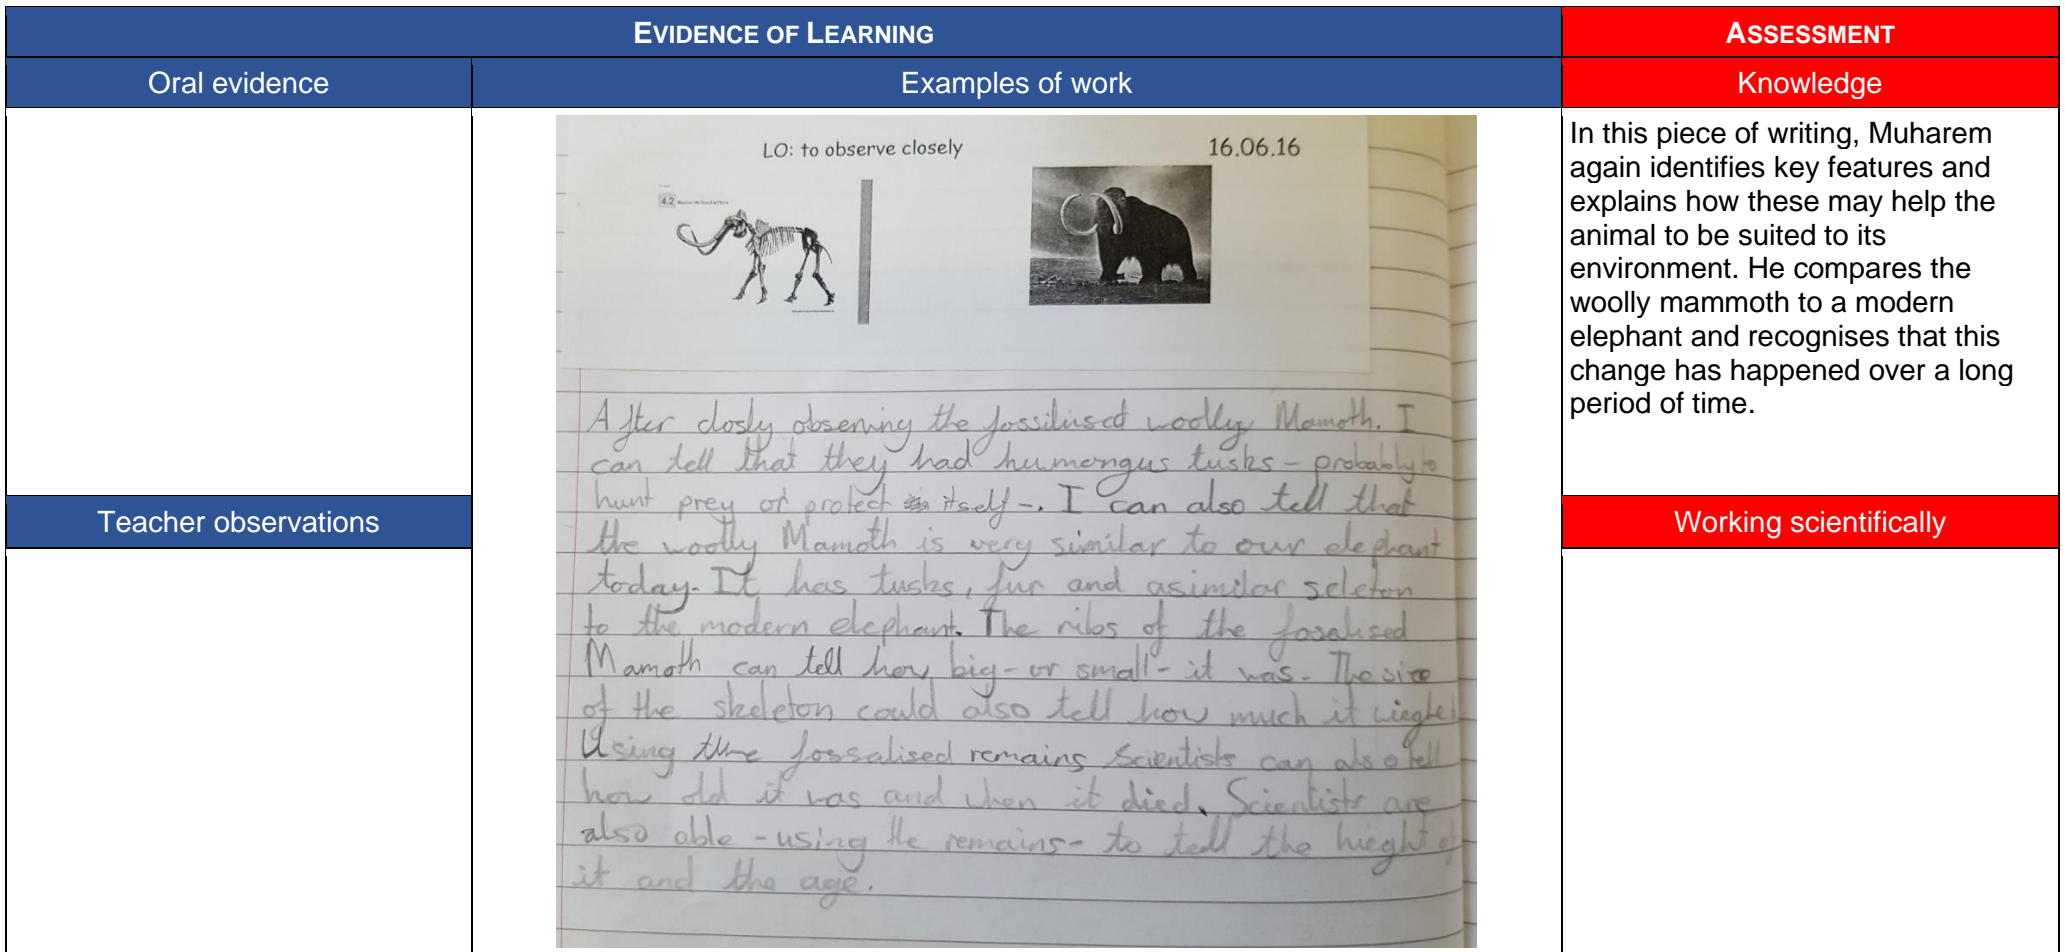 EVIDENCE OF LEARNING
ASSESSMENT
Oral evidence
Examples of work
Knowledge
LO: to observe closely
16.06.16
4.2
After closly observing the fossiliised woolly Mamoth. I
can tell that they had humongus tusks - probably to
hunt prey or protect itself -. I can also tell that
the woolly Mamoth is very similar to our elephant
today. It has tusks, fur and a similar scleton
to the modern elephant. The ribs of the fosalised
Mamoth can tell how big - or small - it was. The size
of the skeleton could also tell how much it wieghed
Using the fossalised remains Scientists can also tell
how old it was and when it died. Scientists are
also able - using the remains - to tell the hieght of
it and the age.
In this piece of writing, Muharem
again identifies key features and
explains how these may help the
animal to be suited to its
environment. He compares the
woolly mammoth to a modern
elephant and recognises that this
change has happened over a long
period of time.
Teacher observations
Working scientifically